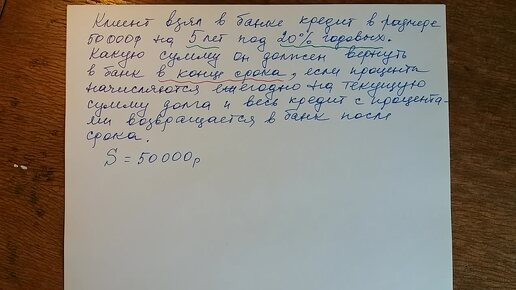 Клиент взял в банке кредит в размере
50000р на 5 лет под 20% годовых.
Какую сумму он должен вернуть
в банк в конце срока, если проценты
начисляются ежегодно на текущую
сумму долга и весь кредит с процента-
ми возвращается в банк после
срока.
S = 50000р